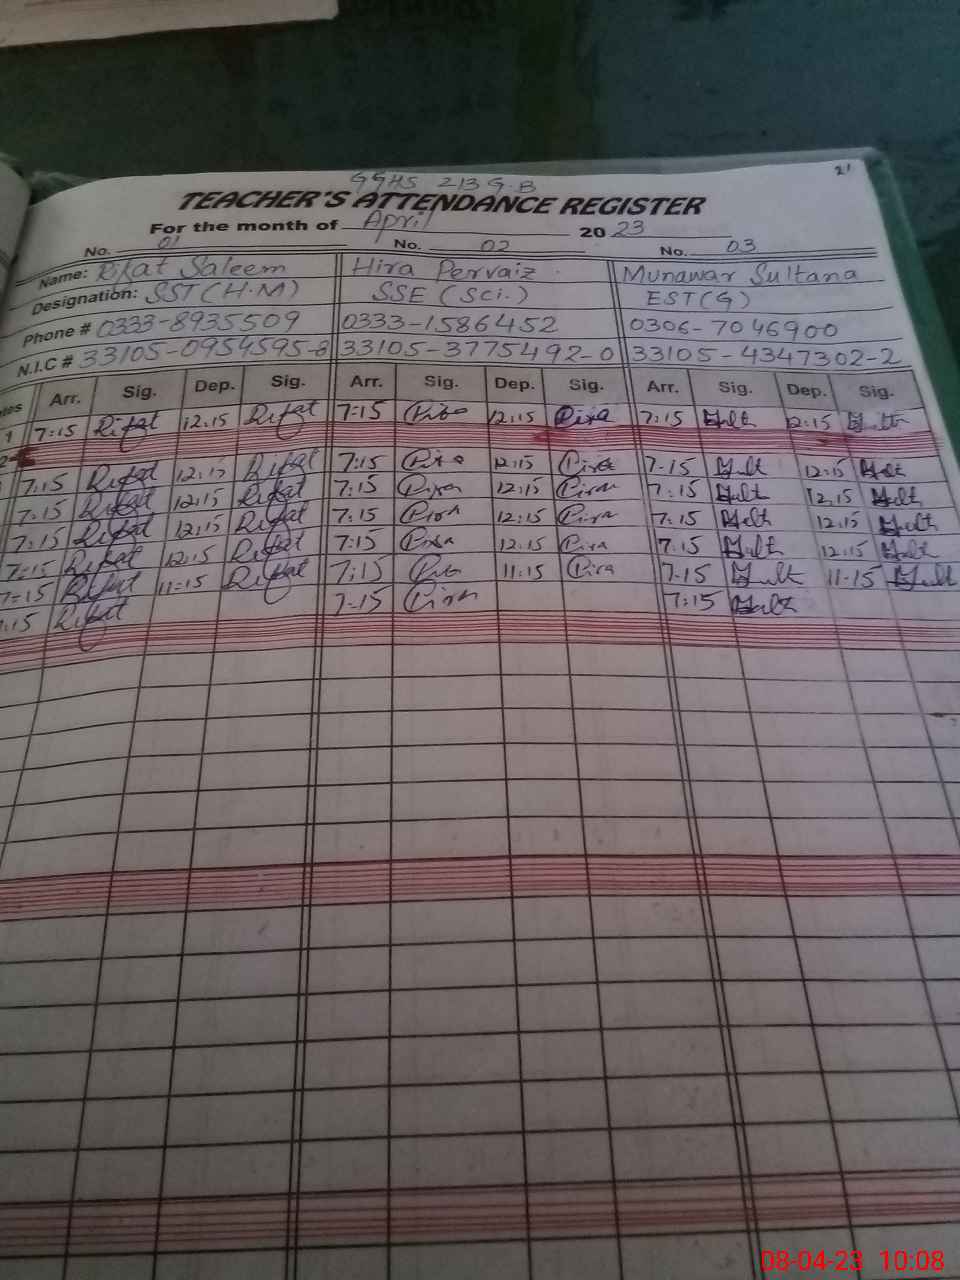 21
GGHS 213 G.B
TEACHER'S ATTENDANCE REGISTER
For the month of April 2023
No. 01 No. 02 No. 03
Name: Rifat Saleem Hira Pervaiz Munawar Sultana
Designation: SST (H.M) SSE (Sci.) EST (G)
Phone # 0333-8935509 0333-1586452 0306-7046900
N.I.C # 33105-0954595-8 33105-3775492-0 33105-4347302-2
Arr. Sig. Dep. Sig. Arr. Sig. Dep. Sig. Arr. Sig. Dep. Sig.
1 7:15 Rifat 12:15 Rifat 7:15 12:15 7:15 12:15
2
7:15 Rifat 12:15 Rifat 7:15 12:15 7-15 12:15
7:15 Rifat 12:15 Rifat 7:15 12:15 7:15 12,15
7:15 Rifat 12:15 Rifat 7:15 12:15 7:15 12:15
7:15 Rifat 12:15 Rifat 7:15 12:15 7:15 12:15
7:15 Rifat 11:15 Rifat 7:15 11:15 7-15 11-15
7:15 Rifat 7-15 7:15
08-04-23 10:08